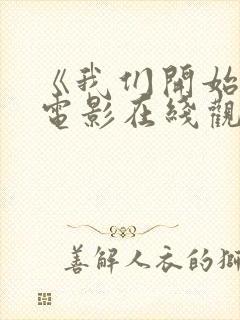 《我们開始
電影在綫觀
善解人衣的獅